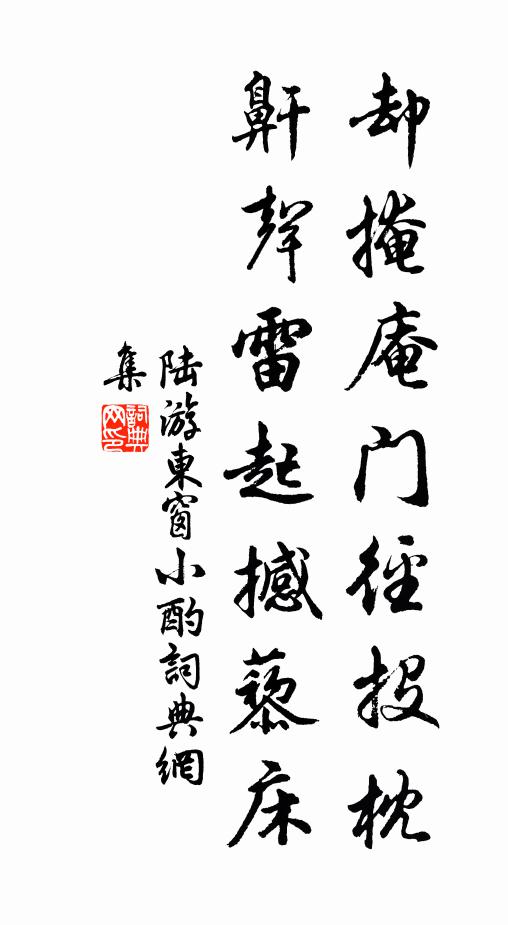 却掩庵门徑投枕
鼾聲雷起撼藜床
陆游東窗小酌詞典網
集
詞典网印